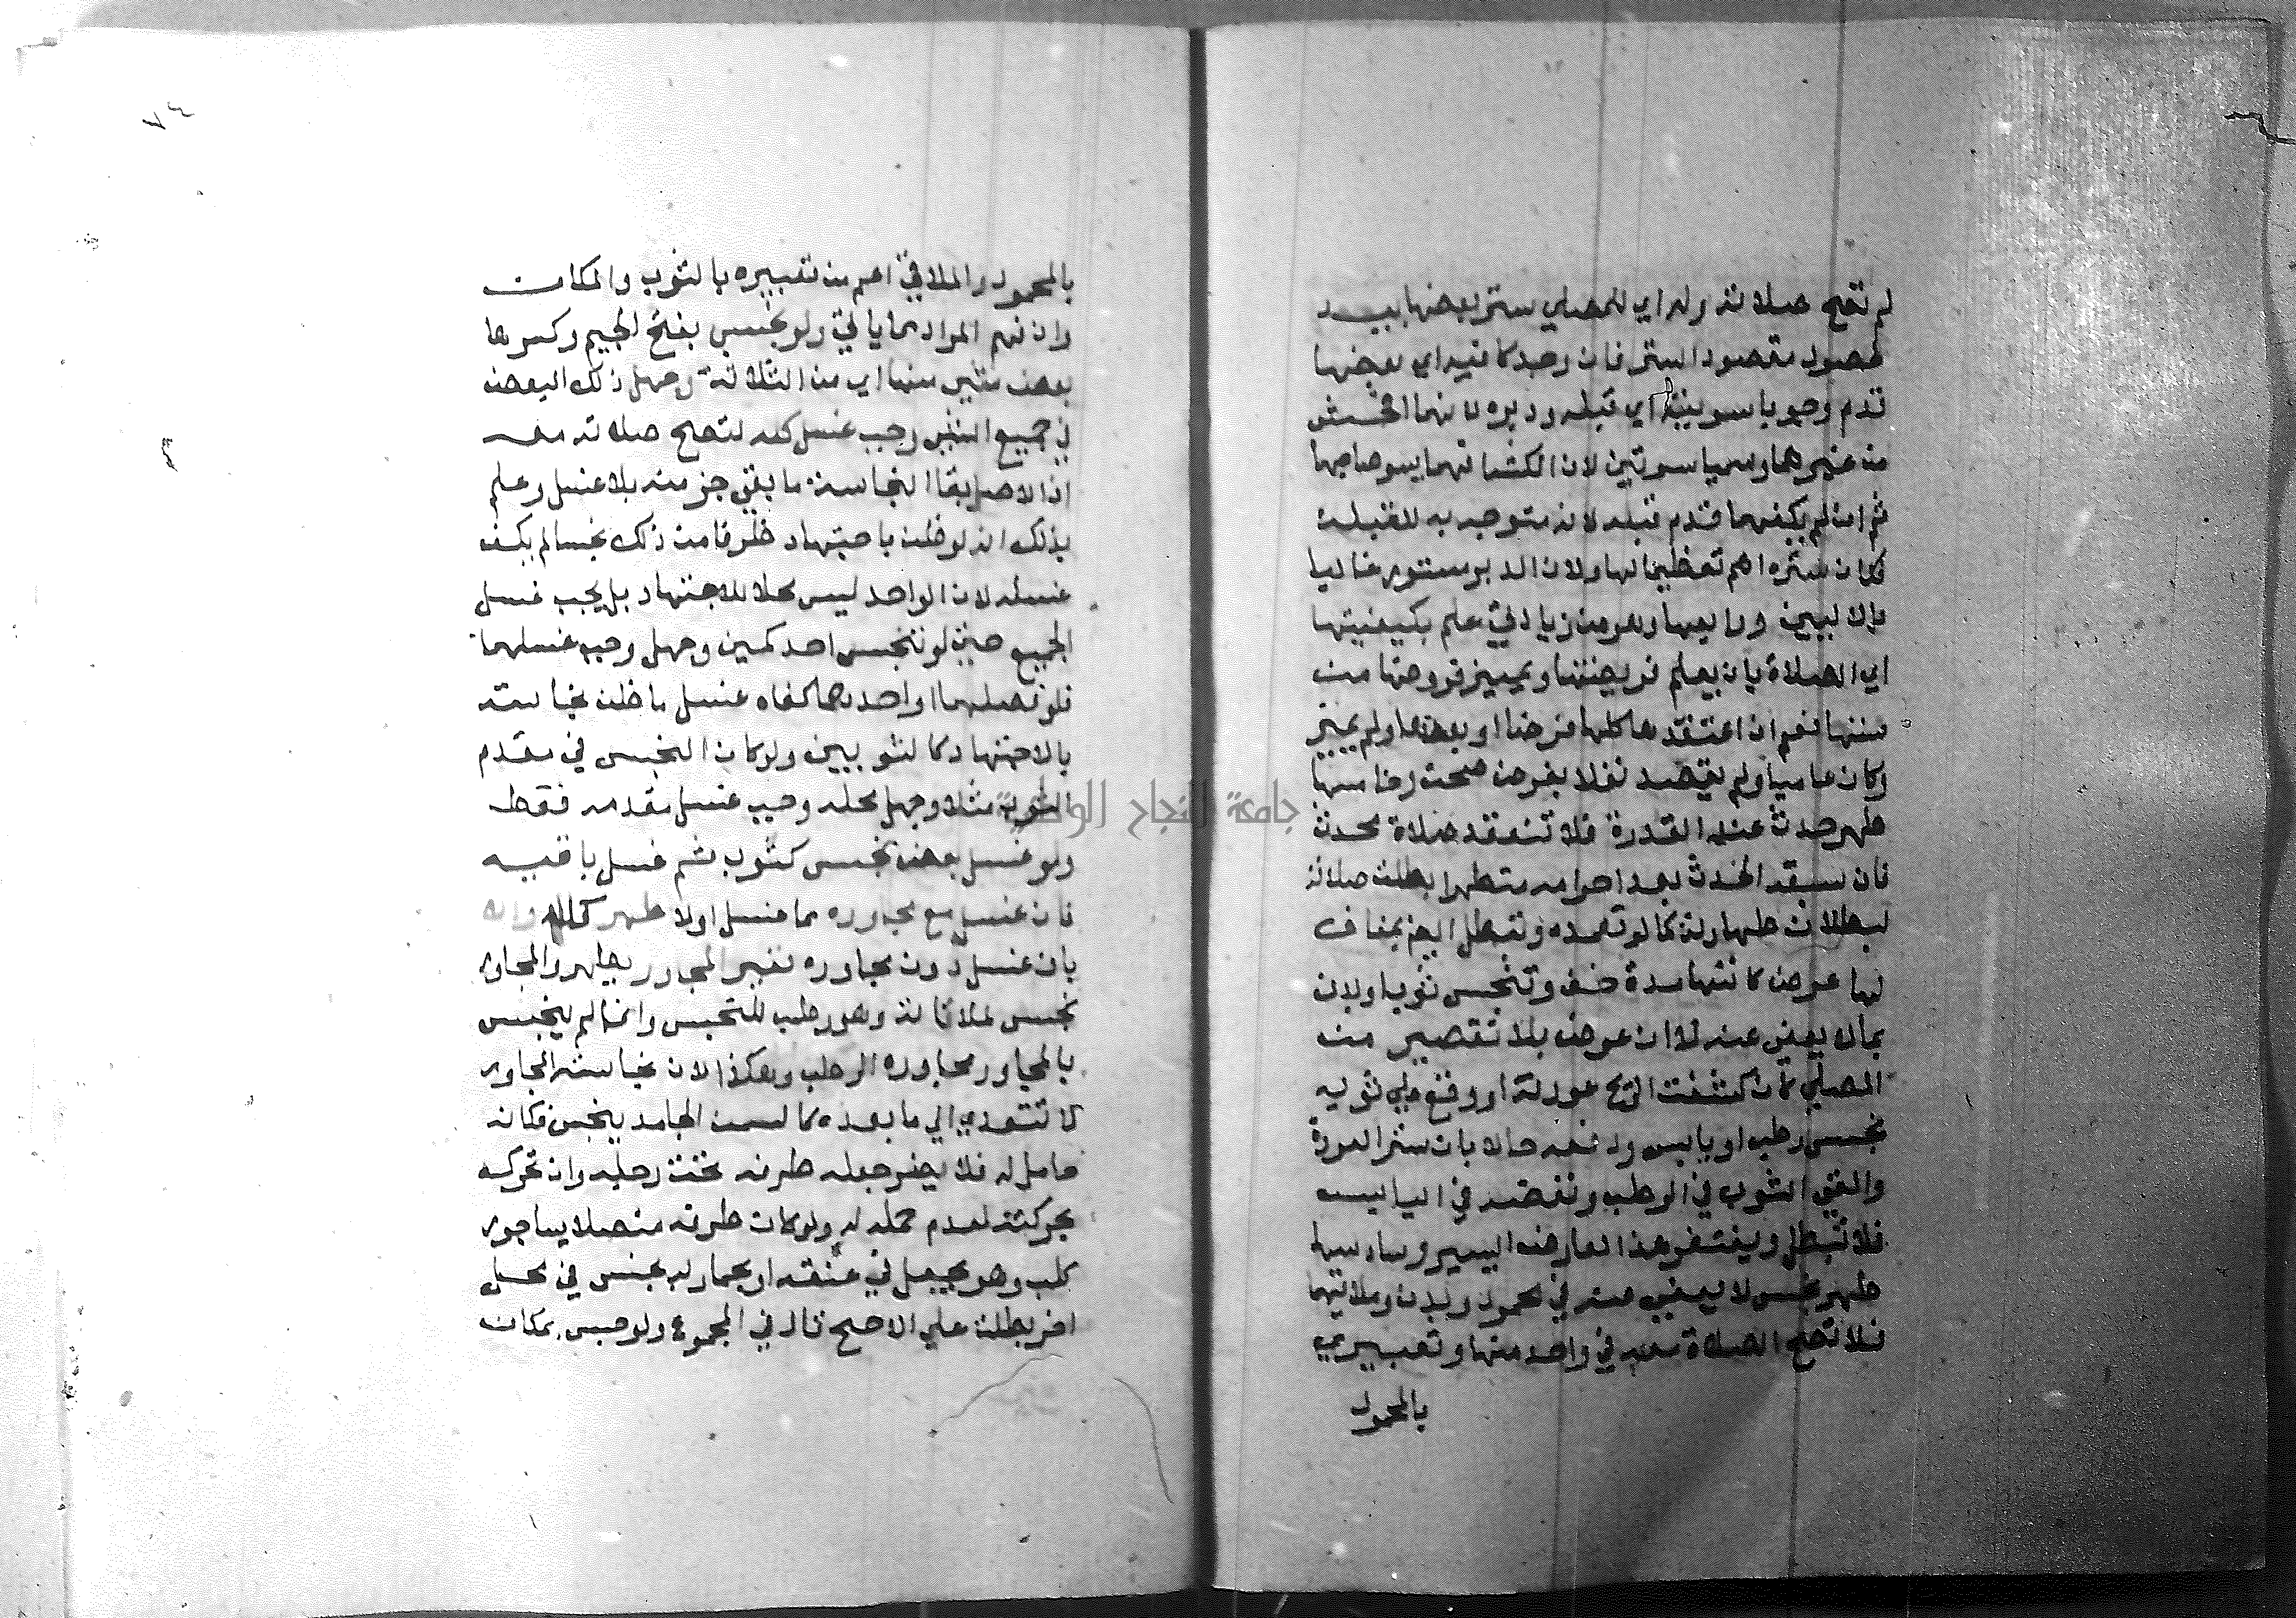 لم تصح صلاته وله اي للمصلي ستر بعضها بيد
لحصول مقصود الستر فان وجد كافيه اي بعضها
قدم وجوبا سوءتيه اي قبله ودبره لانهما افحش
من غيرهما وسميا سوءتين لان انكشافهما يسو صاحبها
ثم ان لم يكفهما قدم قبله لانه متوجه به للقبلة
فكان ستره اهم تعظيما لها ولان الدبر مستور غالبا
بالاليين ورابعها وهو من زيادتي علم بكيفيتها
اي الصلاة بان يعلم فرضيتها ويميز فروضها من
سننها نعم ان اعتقدها كلها فرضا او بعضها ولم يميز
وكان عاميا ولم يقصد نفلا بفرض صحت وخامسها
طهر حدث عند القدرة فلا تنعقد صلاة محدث
فان سبقه الحدث بعد احرامه متطهرا بطلت صلاته
لبطلان طهارته كما لو تعمده وتبطل ايضا بمناف
لها عرض كانتها مدة خف وتنجس ثوب او بدن
بما لا يعفى عنه لا ان عرض بلا تقصير من
المصلي كان كشفت الريح عورته او وقع على ثوبه
نجس رطب او يابس ودفعه حالا بان ستر العورة
والقى الثوب في الرطب ونفضه في اليابس
فلا تبطل ويغتفر هذا العارض اليسير وسادسها
طهر نجس لا يعفى عنه في محمول وبدن وملاقيهما
فلا تصح الصلاة معه في واحد منها وتعبيري
بالمحمول
٧٤
بالمحمول والملاقي اعم من تعبيره بالثوب والمكان
وان فهم المراد مما ياتي ولو نجس بفتح الجيم وكسرها
بعض شي منها اي من الثلاثة وجهل ذلك البعض
في جميع الشي وجب غسل كله لتصح صلاته معه
اذ الاصل بقا النجاسة ما بقي جز منه بلا غسل وعلم
بذلك انه لو ظن باجتهاد طرفا من ذلك نجسا لم يكف
غسله لان الواحد ليس محلا للاجتهاد بل يجب غسل
الجميع حتى لو تنجس احد كمين وجهل وجب غسلهما
فلو فصلهما او احدهما كفاه غسل ما ظن نجاسته
بالاجتهاد كالثوبين ولو كان النجس في مقدم
الثوب مثلا وجهل محله وجب غسل مقدمه فقط
ولو غسل بعض نجس كثوب ثم غسل باقيه
فان غسل مع مجاوره مما غسل اولا طهر كله والا
بان غسل دون مجاوره فغير المجاور يطهر والمجاور
نجس لملاقاته وهو رطب للنجس وانما لم ينجس
بالمجاور مجاوره الرطب وهكذا لان نجاسة المجاور
لا تتعدى الى ما بعده كالسمن الجامد ينجس مكانه
حامل له فلا يضر جعله طرفه تحت رجليه وان تحرك
بحركته لعدم حمله له ولو كان طرفه متصلا بساجور
كلب وهو يجعل في عنقه او بحمار به نجس في محل
اخر بطلت على الاصح قال في المجموع ولو حبس بمكان
جامعة النجاح الوطنية